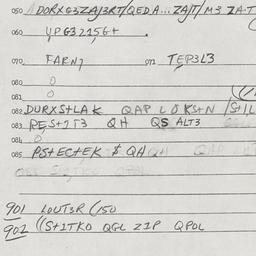 050 DORXG3ZAJ3RT/QEDA...ZAJT/M3 ZA-T
060 YPG32156+ .
070 FARN7 071 TEP3L3
080 0
081 0
082 DURXS+LAK QAP LOKS+N /S+/L
083 PES+2T3 QH QS ALT3
084 0
085 PS+EC+EK $ QA
901 LOUT3R (/50
902 ((S+1TKO QGL Z1P QPOL